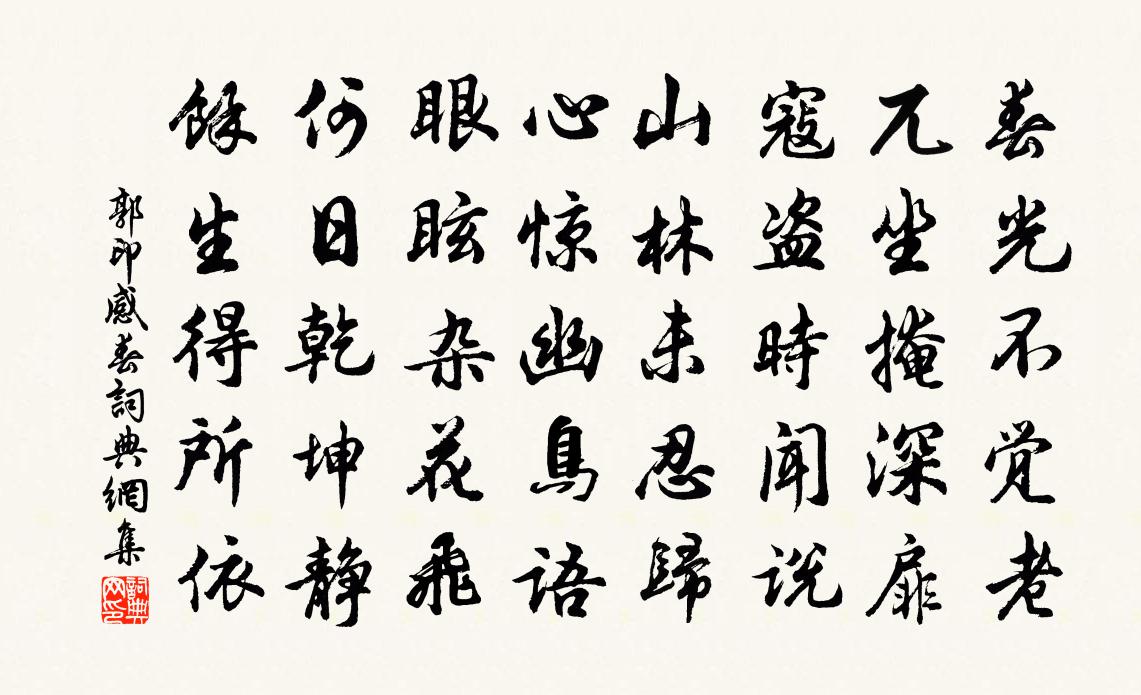 春光不觉老
兀坐掩深扉
寇盗時闻说
山林未忍歸
心惊幽鳥語
眼眩杂花飛
何日乾坤静
餘生得所依
郭印感春詞典網集
詞典网印